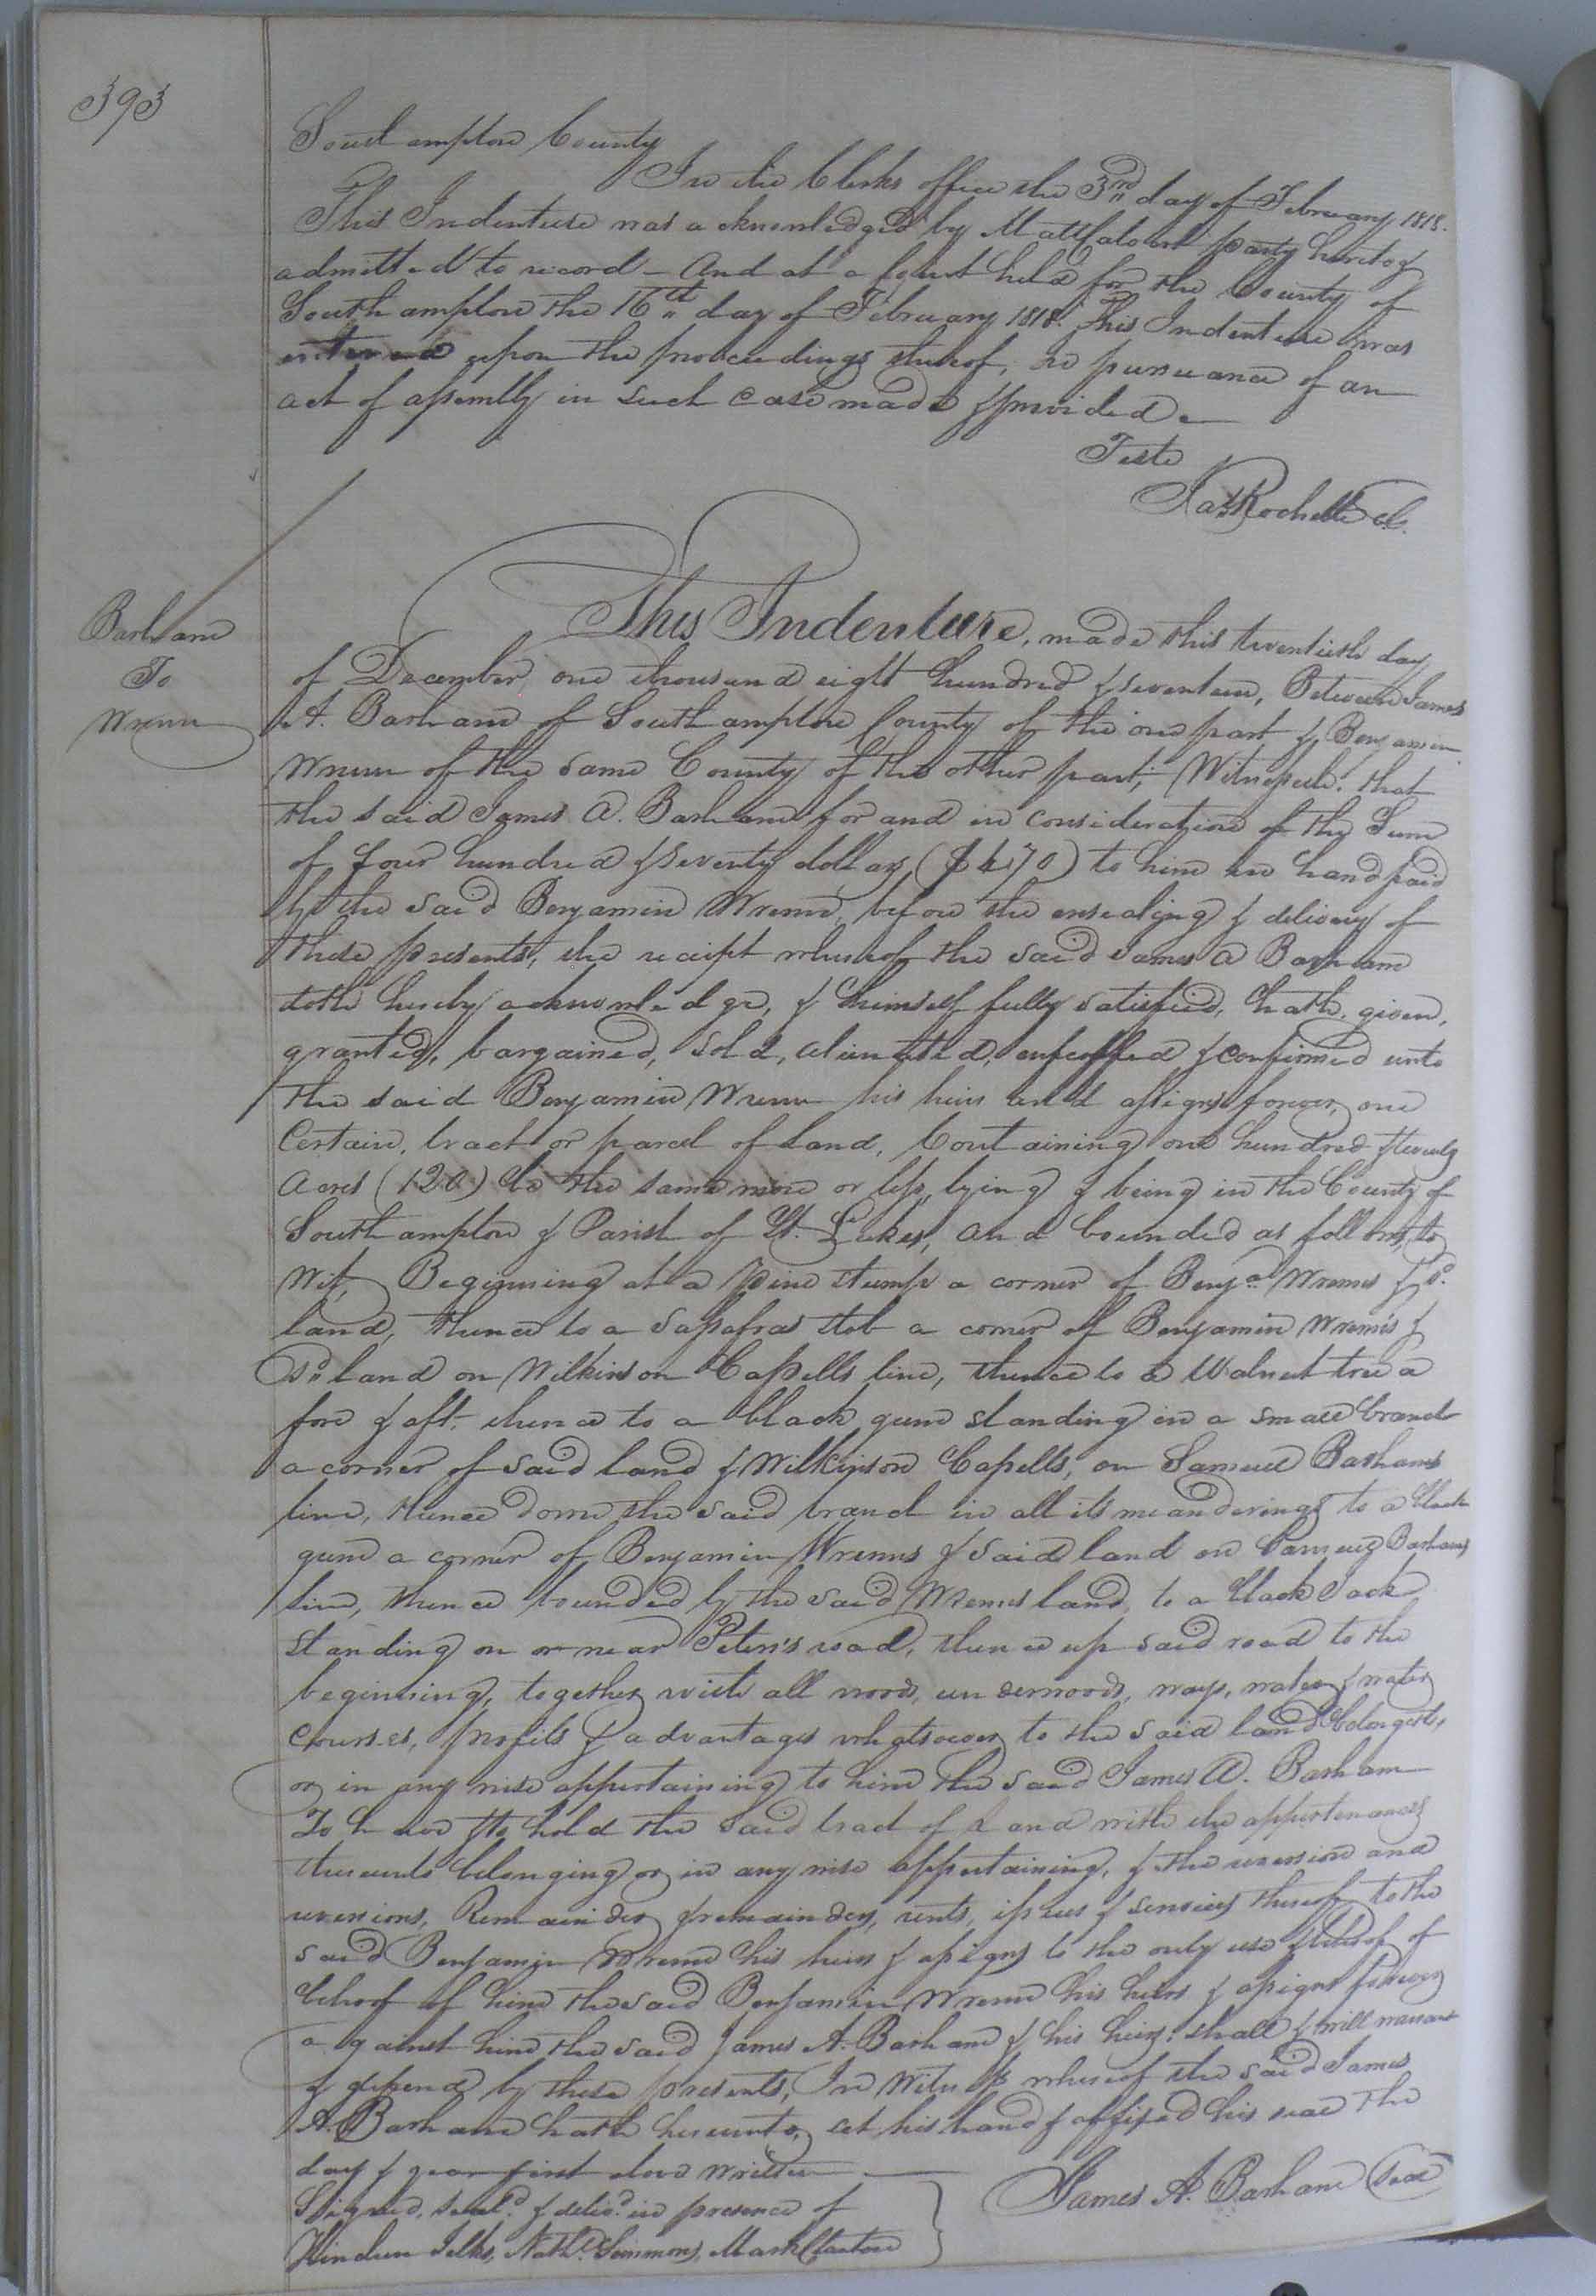 393
Southampton County
In the Clerks office the 3rd day of February 1818.
This Indenture was acknowledged by party hereto &
admitted to record - And at a Court held for the County of
Southampton the 16th day of February 1818. This Indenture was
entered upon the proceedings thereof, in pursuance of an
act of assembly in such case made & provided
Teste
Jas Rochelle cl.
Barham
To
Wrenn
This Indenture, made this twentieth day
of December, one thousand eight hundred & seventeen, Between James
A. Barham of Southampton County of the one part & Benjamin
Wrenn of the same County of the other part, Witnesseth, that
the said James A. Barham for and in consideration of the Sum
of four hundred & seventy dollars ($470) to him in hand paid
by the said Benjamin Wrenn, before the ensealing & delivery of
these presents, the receipt whereof the said James A Barham
doth hereby acknowledge, & himself fully satisfied, hath, given,
granted, bargained, sold, alienated, enfeoffed & confirmed unto
the said Benjamin Wrenn his heirs and assigns forever, one
Certain, tract or parcel of land, Containing one hundred & twenty
Acres (120) be the same more or less, lying & being in the County of
Southampton & Parish of St. Lukes, and bounded as follows, to
wit, Beginning at a pine stump a corner of Benja. Wrenns & sd.
land, thence to a Sassafras stob a corner of Benjamin Wrenn's &
sd. land on Wilkinson Capells line, thence to a Walnut tree a
fore & aft, thence to a black gum standing in a small branch
a corner of said land & Wilkinson Capells, on Samuel Barhams
line, thence down the said branch in all its meanderings to a black
gum a corner of Benjamin Wrenns & said land on Samuel Barhams
line, thence bounded by the said Wrenns land, to a black Jack
standing on or near Peter's road, thence up said road to the
beginning, together with all woods, underwoods, ways, waters & water
courses, profits & advantages whatsoever, to the said land belongest,
or in any wise appertaining to him the said James A. Barham
To have & to hold the said tract of Land with the appertenances
thereunto belonging or in any wise appertaining, & the reversion and
reversions, Remainder & remainders, rents, issues & services thereof to the
said Benjamin Wrenn his heirs & assigns to the only use & of
behoof of him the said Benjamin Wrenn his heirs & assigns forever
against him the said James A. Barham & his heirs shall & will warrant
& defend by these presents, In Witness whereof the said James
A. Barham hath hereunto, set his hand & affixed his seal the
day & year first above written
Signed, seald. & delivd. in presence of
James A. Barham (seal)
Jelks, Nathl. Simmons, Mark Claxton